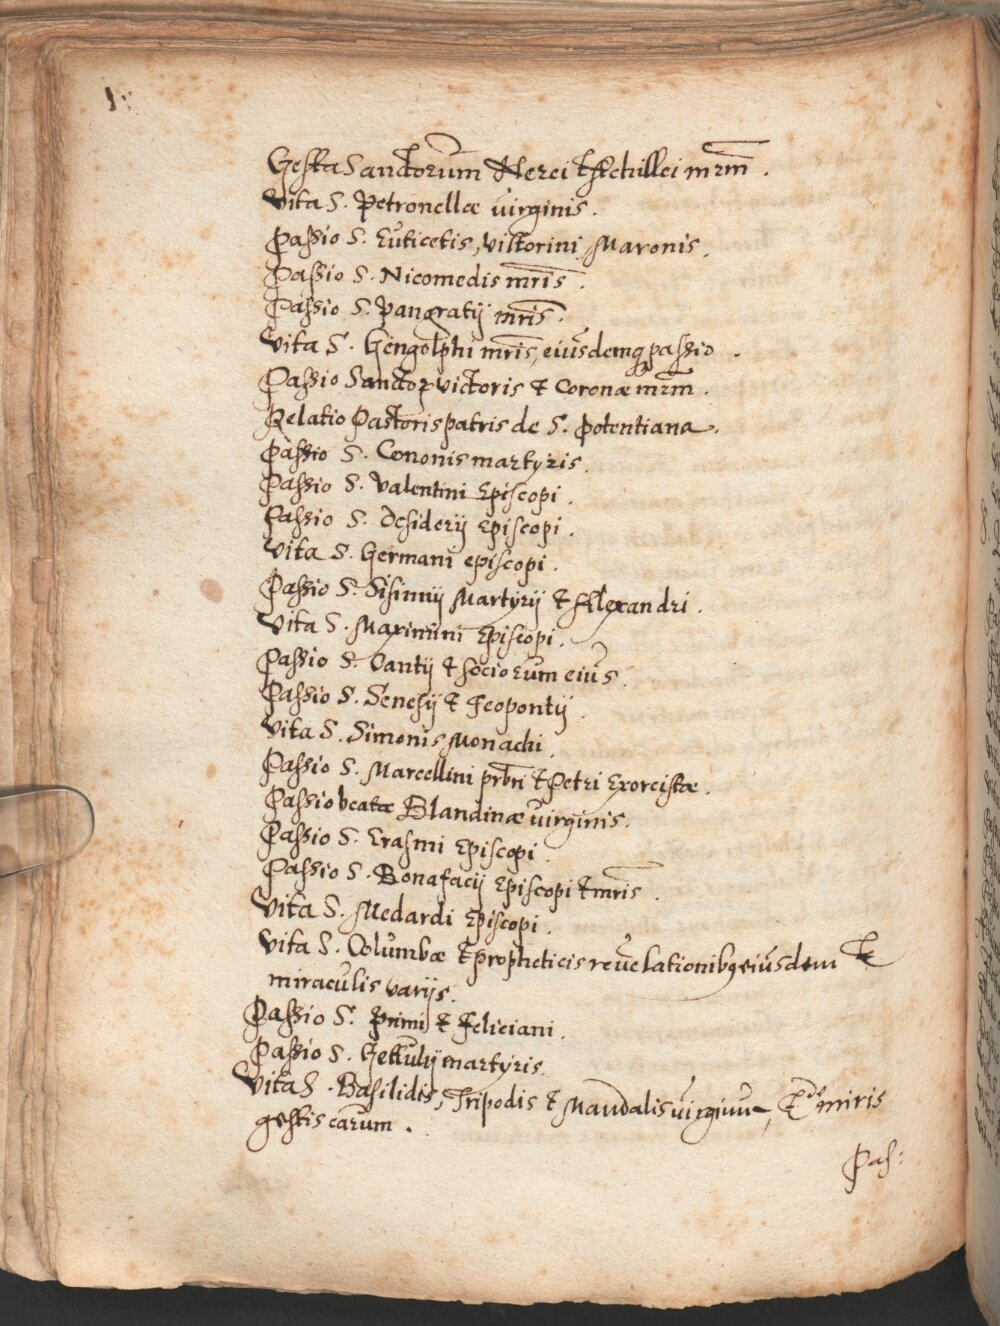 Gesta Sanctorum Nerei et Achillei mrm̄.
Vita S. Petronellæ virginis.
Passio S. Euticetis, Victorini, Maronis.
Passio S. Nicomedis mr̄is.
Passio S. Pangratij mr̄is.
Vita S. Gengolphi mr̄is, eiusdemq passio.
Passio Sanctoꝝ Victoris et Coronæ mrm̄.
Relatio Pastoris patris de S. Potentiana.
Passio S. Cononis martyris.
Passio S. Valentini Episcopi.
Passio S. Desiderij Episcopi.
Vita S. Germani episcopi.
Passio S. Sisinnij Martyrij et Alexandri.
Vita S. Maximini Episcopi.
Passio S. Cantij et sociorum eius.
Passio S. Senesij et Feopontij.
Vita S. Simonis Monachi.
Passio S. Marcellini prb̄ri et Petri Exorcistæ.
Passio beatæ Blandinæ virginis.
Passio S. Erasmi Episcopi.
Passio S. Bonafacij Episcopi et mr̄is.
Vita S. Medardi Episcopi.
Vita S. Columbæ et propheticis revelationibꝰ eiusdem et
miraculis varijs.
Passio S. Primi et Feliciani.
Passio S. Gettulij martyris.
Vita S. Basilidis, Tripodis et Mandalis virginum, miris
gestis earum.
Pas: